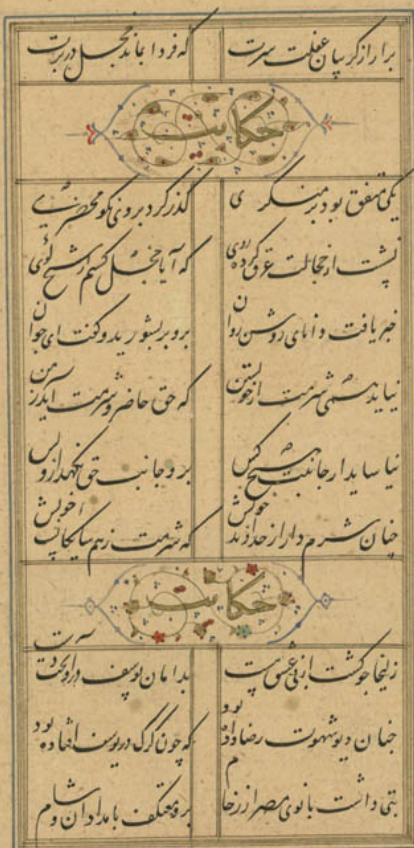 برار از گریبان غفلت سرت که فردا نماند مخجل در برت
حکایت
یکی متفق بود بر منکری گذر کرد بر وی نکو محضری
نشست از خجالت عرق کرده روی که آیا خجل گشتم از شیخ کوی
خبر یافت دانای روشن روان برو بر بشورید و گفت ای جوان
نیاید همی شرمت از خویشتن که حق حاضر و شرمت آید ز من
نیاساید از جانب هیچ کس برو جانب حق نگهدار و بس
چنان شرم دار از خداوند خویش که شرمت ز همسایگانست و خویش
حکایت
زلیخا چو گشت از می عشق مست بدامان یوسف در آویخت دست
چنان دیو شهوت رضا داده بود که چون گرگ در یوسف افتاده بود
بتی داشت بانوی مصر از رخام برو معتکف بامدادان و شام